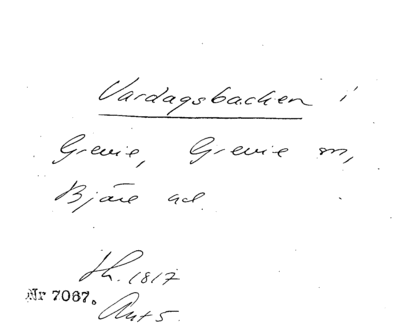 Vardagsbacken i
Grevie, Grevie sn,
Bjäre hd.
Sk. 1817
Nr 7067.
Ant 5.